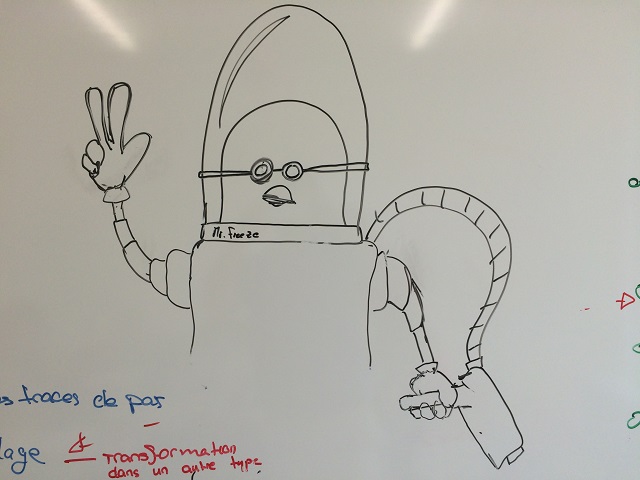 Mr. Freeze
s traces de pas
lage
transformation
dans un autre type